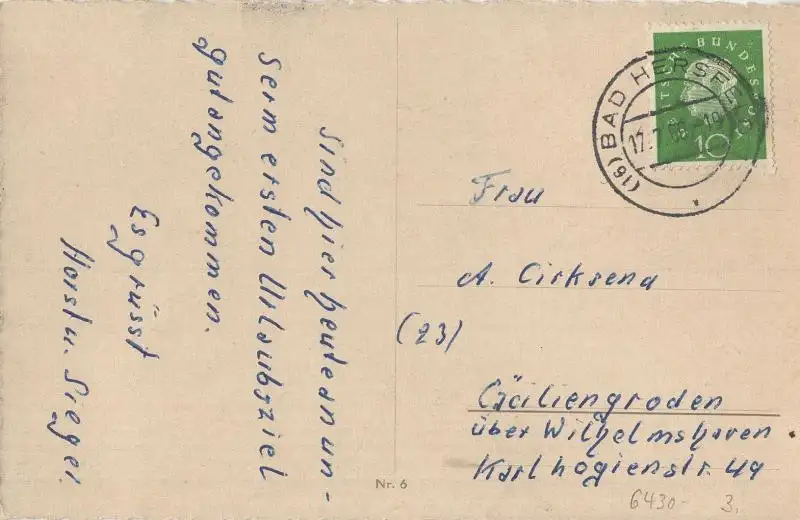 Sind hier heute an un-
serm ersten Urlaubsziel
gut angekommen.
Es grüsst
Horst u. Sieger.
DEUTSCHE BUNDESPOST
10
(16) BAD HERSFELD
17.7.
Frau
A. Cirksena
(23)
Cäciliengroden
über Wilhelmshaven.
Karlhogienstr. 49
Nr. 6
6430- 3,